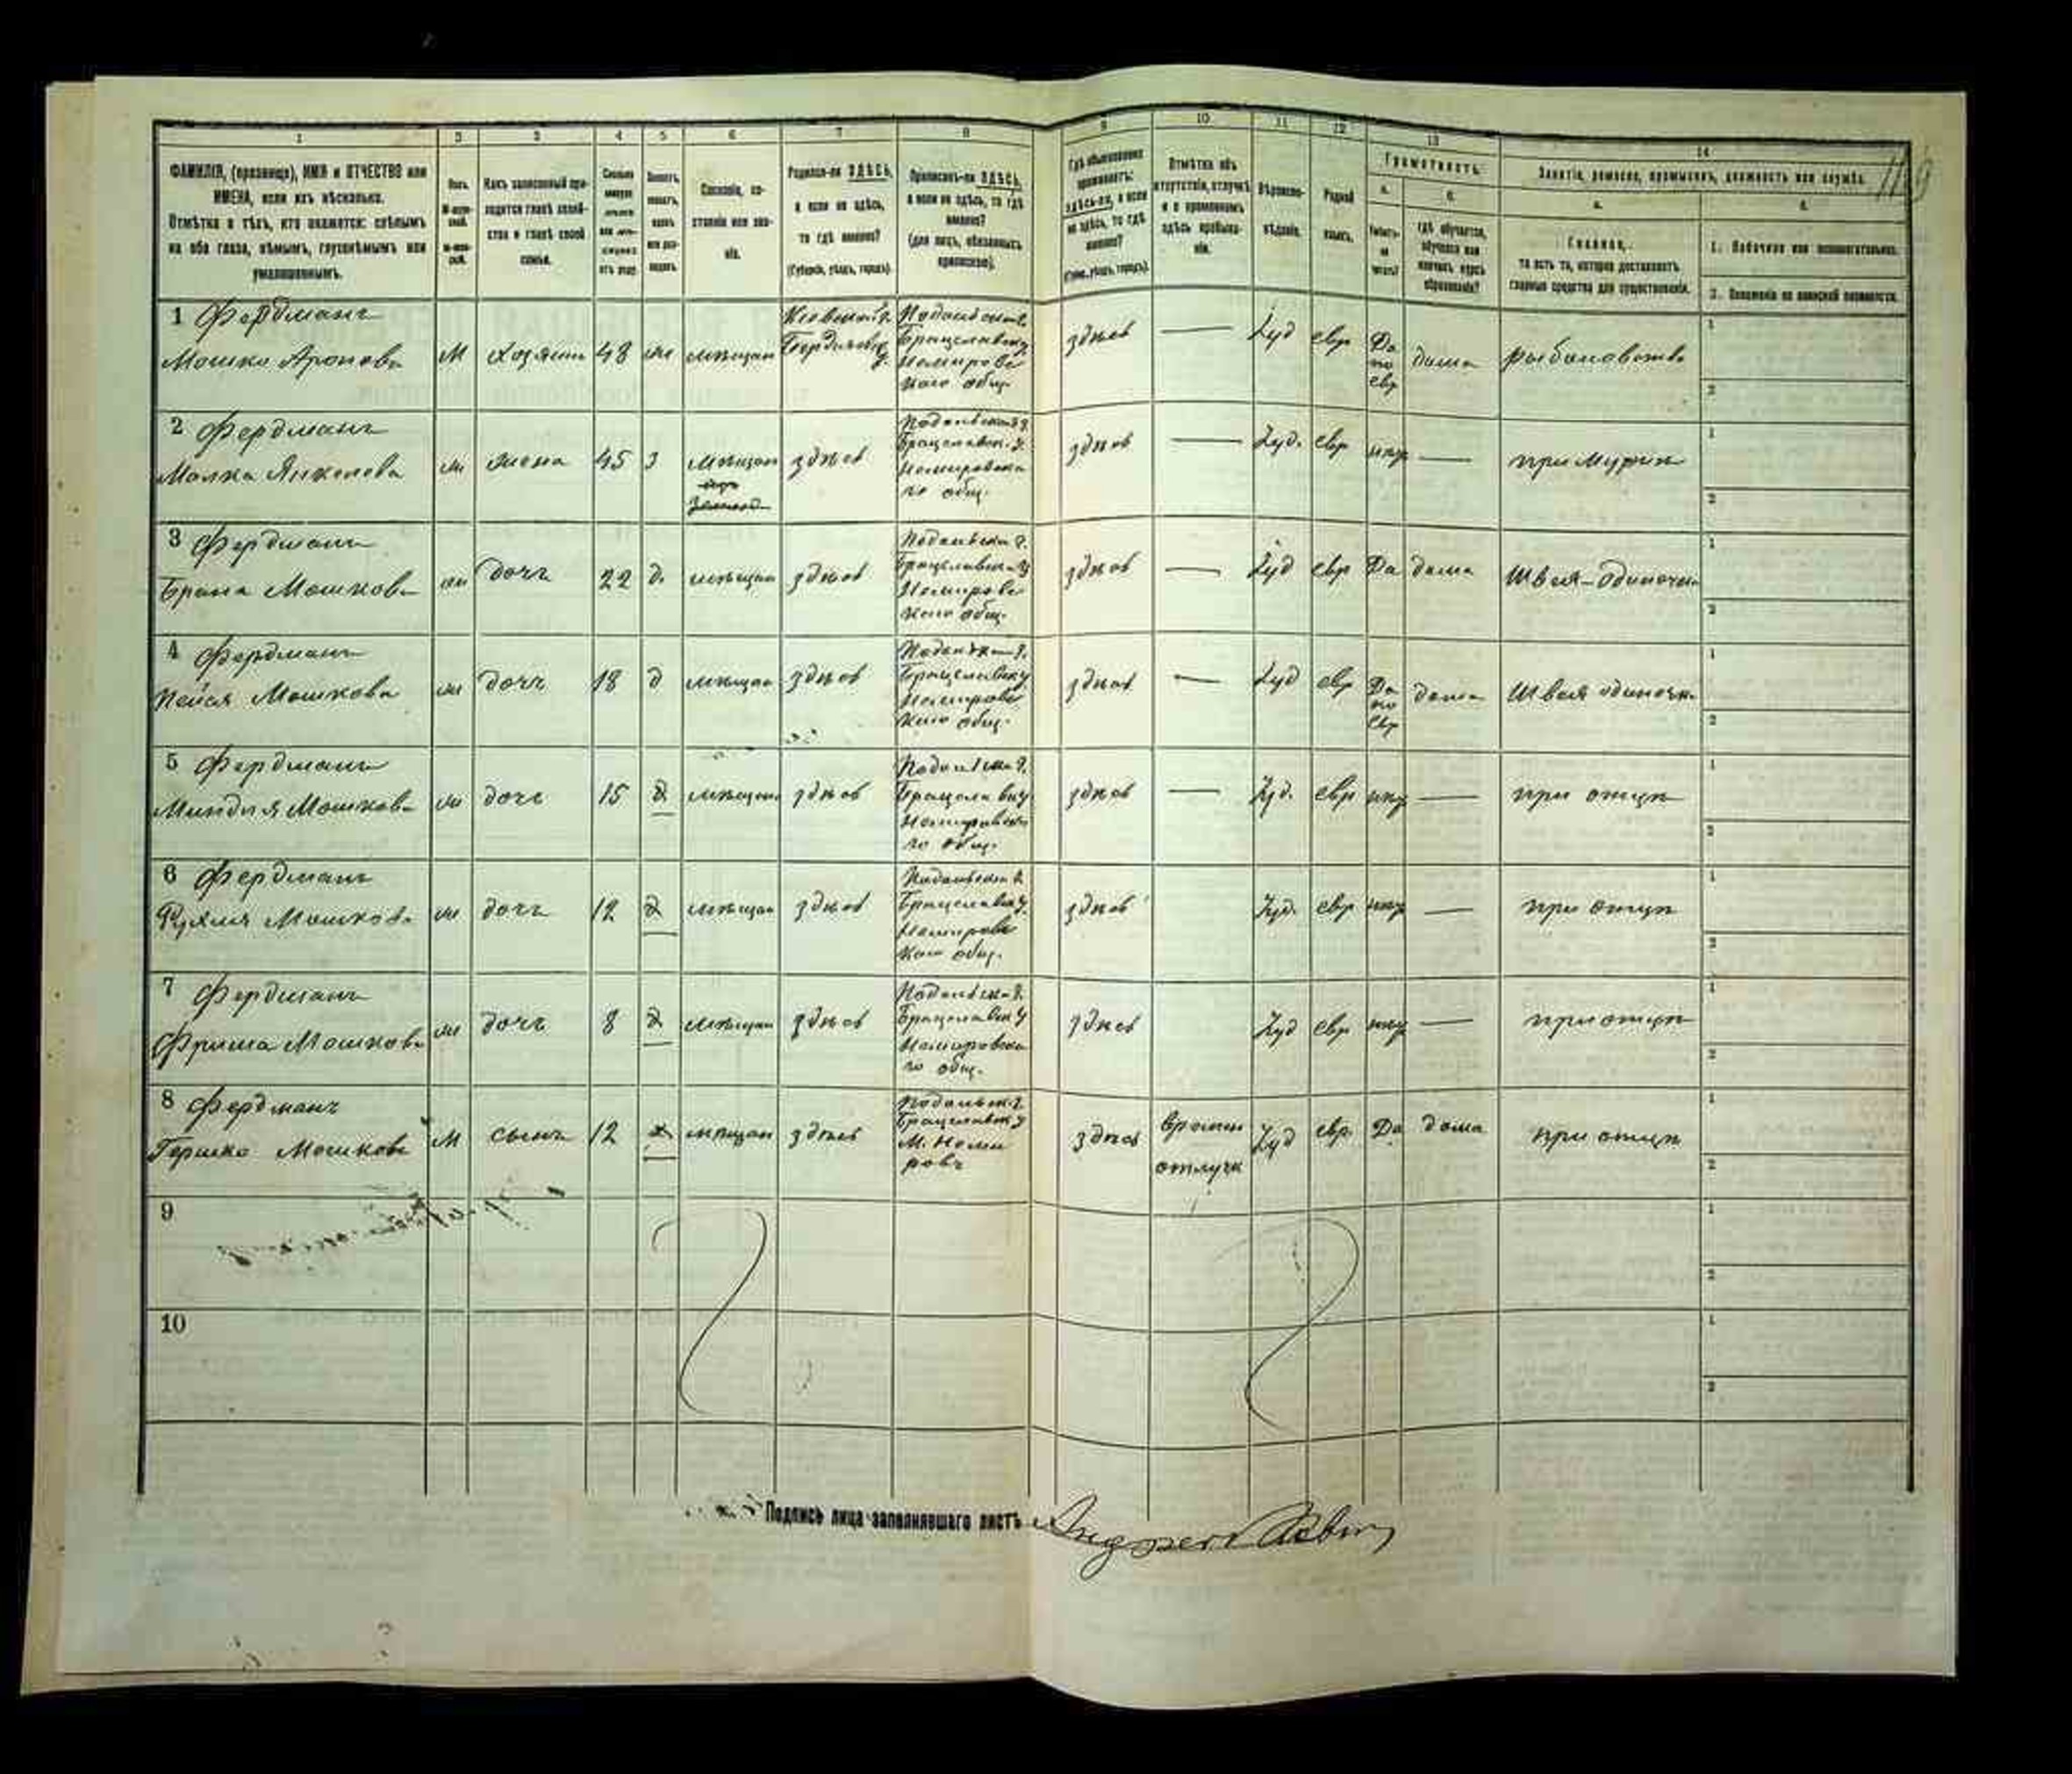 1 2 3 4 5 6 7 8 9 10 11 12 13 14
ФАМИЛІЯ, (прозвище), ИМЯ и ОТЧЕСТВО или
ИМЕНА, если ихъ нѣсколько.
Отмѣтка о тѣхъ, кто окажется: слѣпымъ
на оба глаза, нѣмымъ, глухонѣмымъ или
умалишеннымъ.
Полъ.
Какъ записанный при-
ходится главѣ хозяй-
ства и главѣ своей
семьи.
Сословіе, со-
стояніе или зва-
ніе.
Родился-ли ЗДѢСЬ,
а если не здѣсь,
то гдѣ именно?
(Губернія, уѣздъ, городъ).
Приписанъ-ли ЗДѢСЬ,
а если не здѣсь, то гдѣ
именно?
(для лицъ, обязанныхъ
припискою).
Гдѣ обыкновенно
проживаетъ:
здѣсь-ли, а если
не здѣсь, то гдѣ
именно?
(Губер., уѣздъ, городъ).
Отмѣтка объ
отсутствіи, отлучкѣ
и о временномъ
здѣсь пребыва-
ніи.
Вѣроиспо-
вѣданіе.
Родной
языкъ.
Грамотность.
а.
Умѣетъ-
ли
читать?
б.
гдѣ обучается,
обучался или
кончилъ курсъ
образованія?
Занятіе, ремесло, промыселъ, должность или служба.
а.
Главное,
то есть то, которое доставляетъ
главныя средства для существованія.
б.
1. Побочное или вспомогательное.
2. Положеніе по воинской повинности.
1 Фердманъ
Мошко Ароновъ
М хозяинъ 48 ж мѣщан
Кіевской г.
Бердичевс у.
Подольской г.
Брацлавску
Немировс
каго общ.
здѣсь — Іуд евр
Да
по
евр
дома рыболовство
2 Фердманъ
Малка Янкелева
ж жена 45 з мѣщан здѣсь
Подольской г.
Брацлавск. у.
Немировска
го общ.
здѣсь — Іуд. евр нѣт — при мужѣ
3 Фердманъ
Брана Мошков
ж дочь 22 д. мѣщан здѣсь
Подольскш г.
Брацлавска у
Немировс
каго общ.
здѣсь — Іуд евр Да дома Швея-одиночка
4 Фердманъ
Пейся Мошкова
ж дочь 18 д мѣщан здѣсь
Подольской г.
Брацлавску
Немировс
каго общ.
здѣсь — Іуд евр
Да
по
евр
дома Швея одиночк
5 Фердманъ
Миндля Мошков
ж дочь 15 д мѣщан здѣсь
Подольской г.
Брацлавску
Немировск
го общ.
здѣсь — Іуд. евр нѣт — при отцѣ
6 Фердманъ
Рухля Мошкова
ж дочь 12 д мѣщан здѣсь
Подольской г.
Брацлавску
Немировс
каго общ.
здѣсь Іуд. евр нѣт — при отцѣ
7 Фердманъ
Фрима Мошкова
ж дочь 8 д мѣщан здѣсь
Подольской г.
Брацлавск у
Немировска
го общ.
здѣсь Іуд евр нѣт — при отцѣ
8 Фердманъ
Гершко Мошковъ
М сынъ 12 х мѣщан здѣсь
Подольск г.
Брацлавск у
М. Неми
ровъ
здѣсь
времен
отлучк
Іуд евр. Да дома при отцѣ
9
10
Подпись лица заполнявшаго листъ